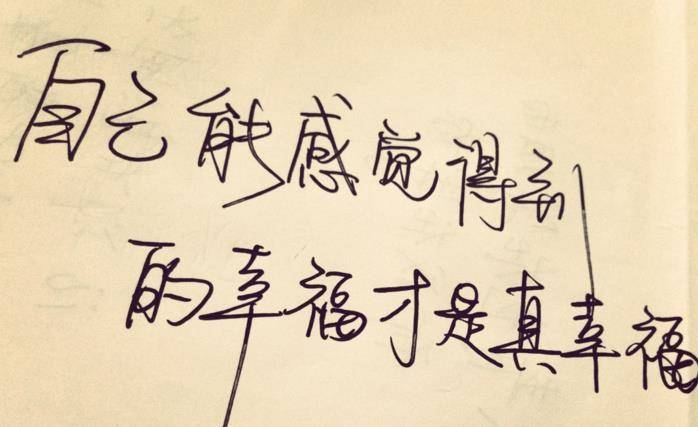 自己能感觉得到
的幸福才是真幸福